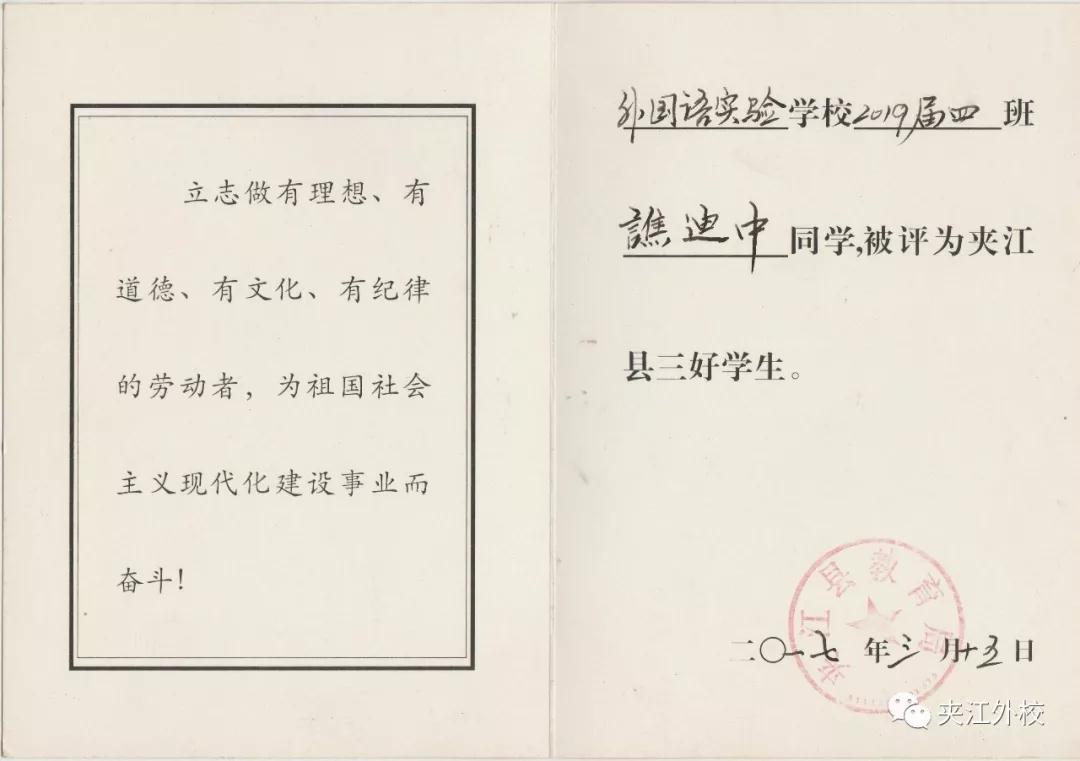 立志做有理想、有
道德、有文化、有纪律
的劳动者，为祖国社会
主义现代化建设事业而
奋斗！
外国语实验学校2019届四班
譙迪中同学,被评为夹江
县三好学生。
夹江县教育局
二〇一七年三月十五日
夹江外校